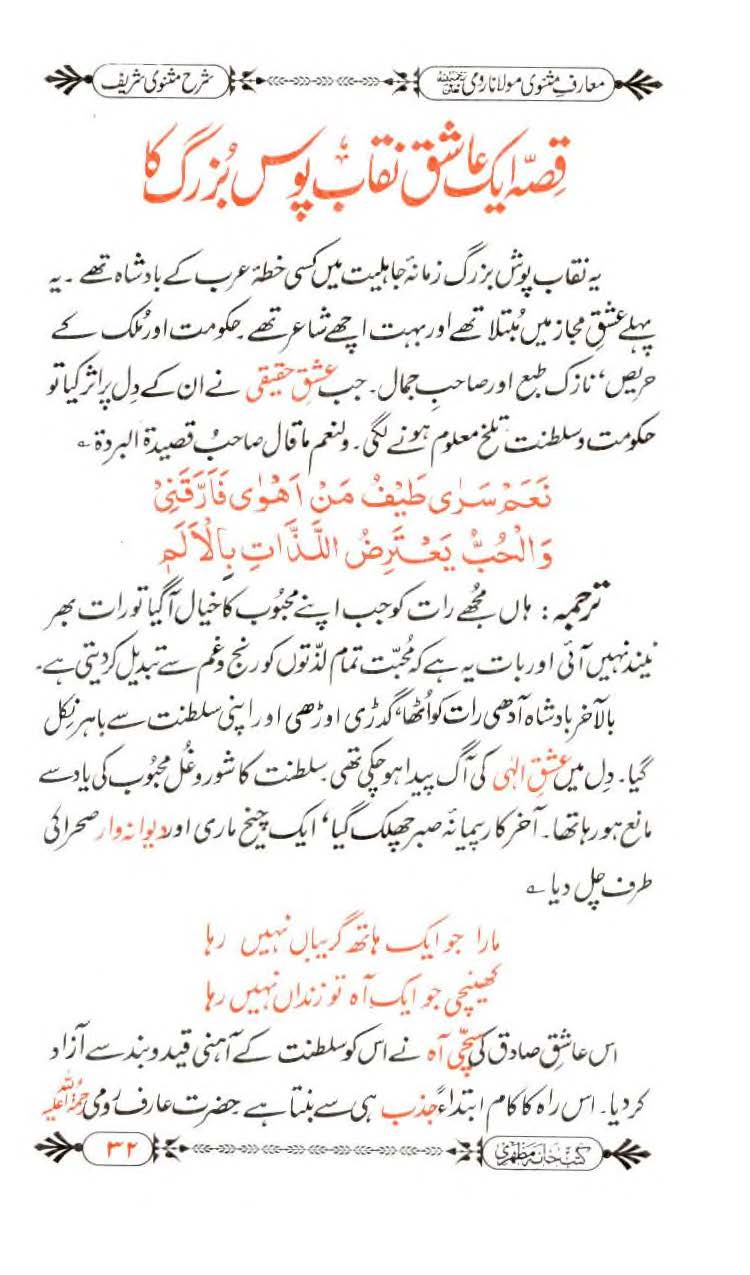 معارفِ مثنوی مولانا رومی رحمۃ اللہ علیہ
شرح مثنوی شریف
قصّہ ایک عاشق نقاب پوس بُزرگ کا
یہ نقاب پوش بزرگ زمانۂ جاہلیت میں کسی خطۂ عرب کے بادشاہ تھے ۔ یہ
پہلے عشقِ مجاز میں مُبتلا تھے اور بہت اچھے شاعر تھے ۔ حکومت اور مُلک کے
حریص، نازک طبع اور صاحبِ جمال ۔ جب عشقِ حقیقی نے ان کے دِل پر اثر کیا تو
حکومت و سلطنت تلخ معلوم ہونے لگی ۔ ولنعم ما قال صاحبُ قصیدۃ البردۃ ؎
نَعَمْ سَرٰی طَیْفُ مَنْ اَهْوٰی فَاَرَّقَنِیْ
وَالْحُبُّ یَعْتَرِضُ اللَّذَّاتِ بِالْاَلَمِ
ترجمہ : ہاں مجھے رات کو جب اپنے محبُوب کا خیال آگیا تو رات بھر
نیند نہیں آئی اور بات یہ ہے کہ مُحبّت تمام لذّتوں کو رنج و غم سے تبدیل کر دیتی ہے۔
بالآخر بادشاہ آدھی رات کو اُٹھا، گدڑی اوڑھی اور اپنی سلطنت سے باہر نِکل
گیا۔ دِل میں عشقِ الٰہی کی آگ پیدا ہو چکی تھی ۔ سلطنت کا شور و غُل محبُوب کی یاد سے
مانع ہو رہا تھا۔ آخر کار پیمانۂ صبر چھلک گیا، ایک چیخ ماری اور دیوانہ وار صحرا کی
طرف چل دیا ؎
مارا جو ایک ہاتھ گریباں نہیں رہا
کھینچی جو ایک آہ تو زنداں نہیں رہا
اس عاشقِ صادق کی سچّی آہ نے اس کو سلطنت کے آہنی قید و بند سے آزاد
کر دیا۔ اس راہ کا کام ابتداءً جذب ہی سے بنتا ہے حضرت عارف رُومی رحمۃ اللہ علیہ
کتب خانہ مظہری
۳۲